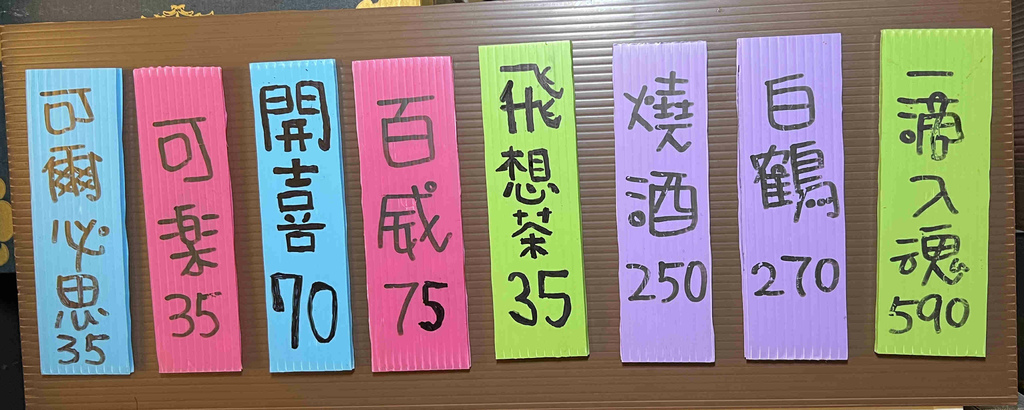 可爾必思
35
可楽
35
開喜
70
百威
75
飛想茶
35
燒酒
250
白鶴
270
一滴入魂
590